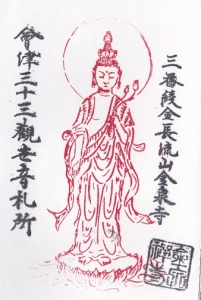 三番綾金長流山金泉寺
會津三十三觀世音札所